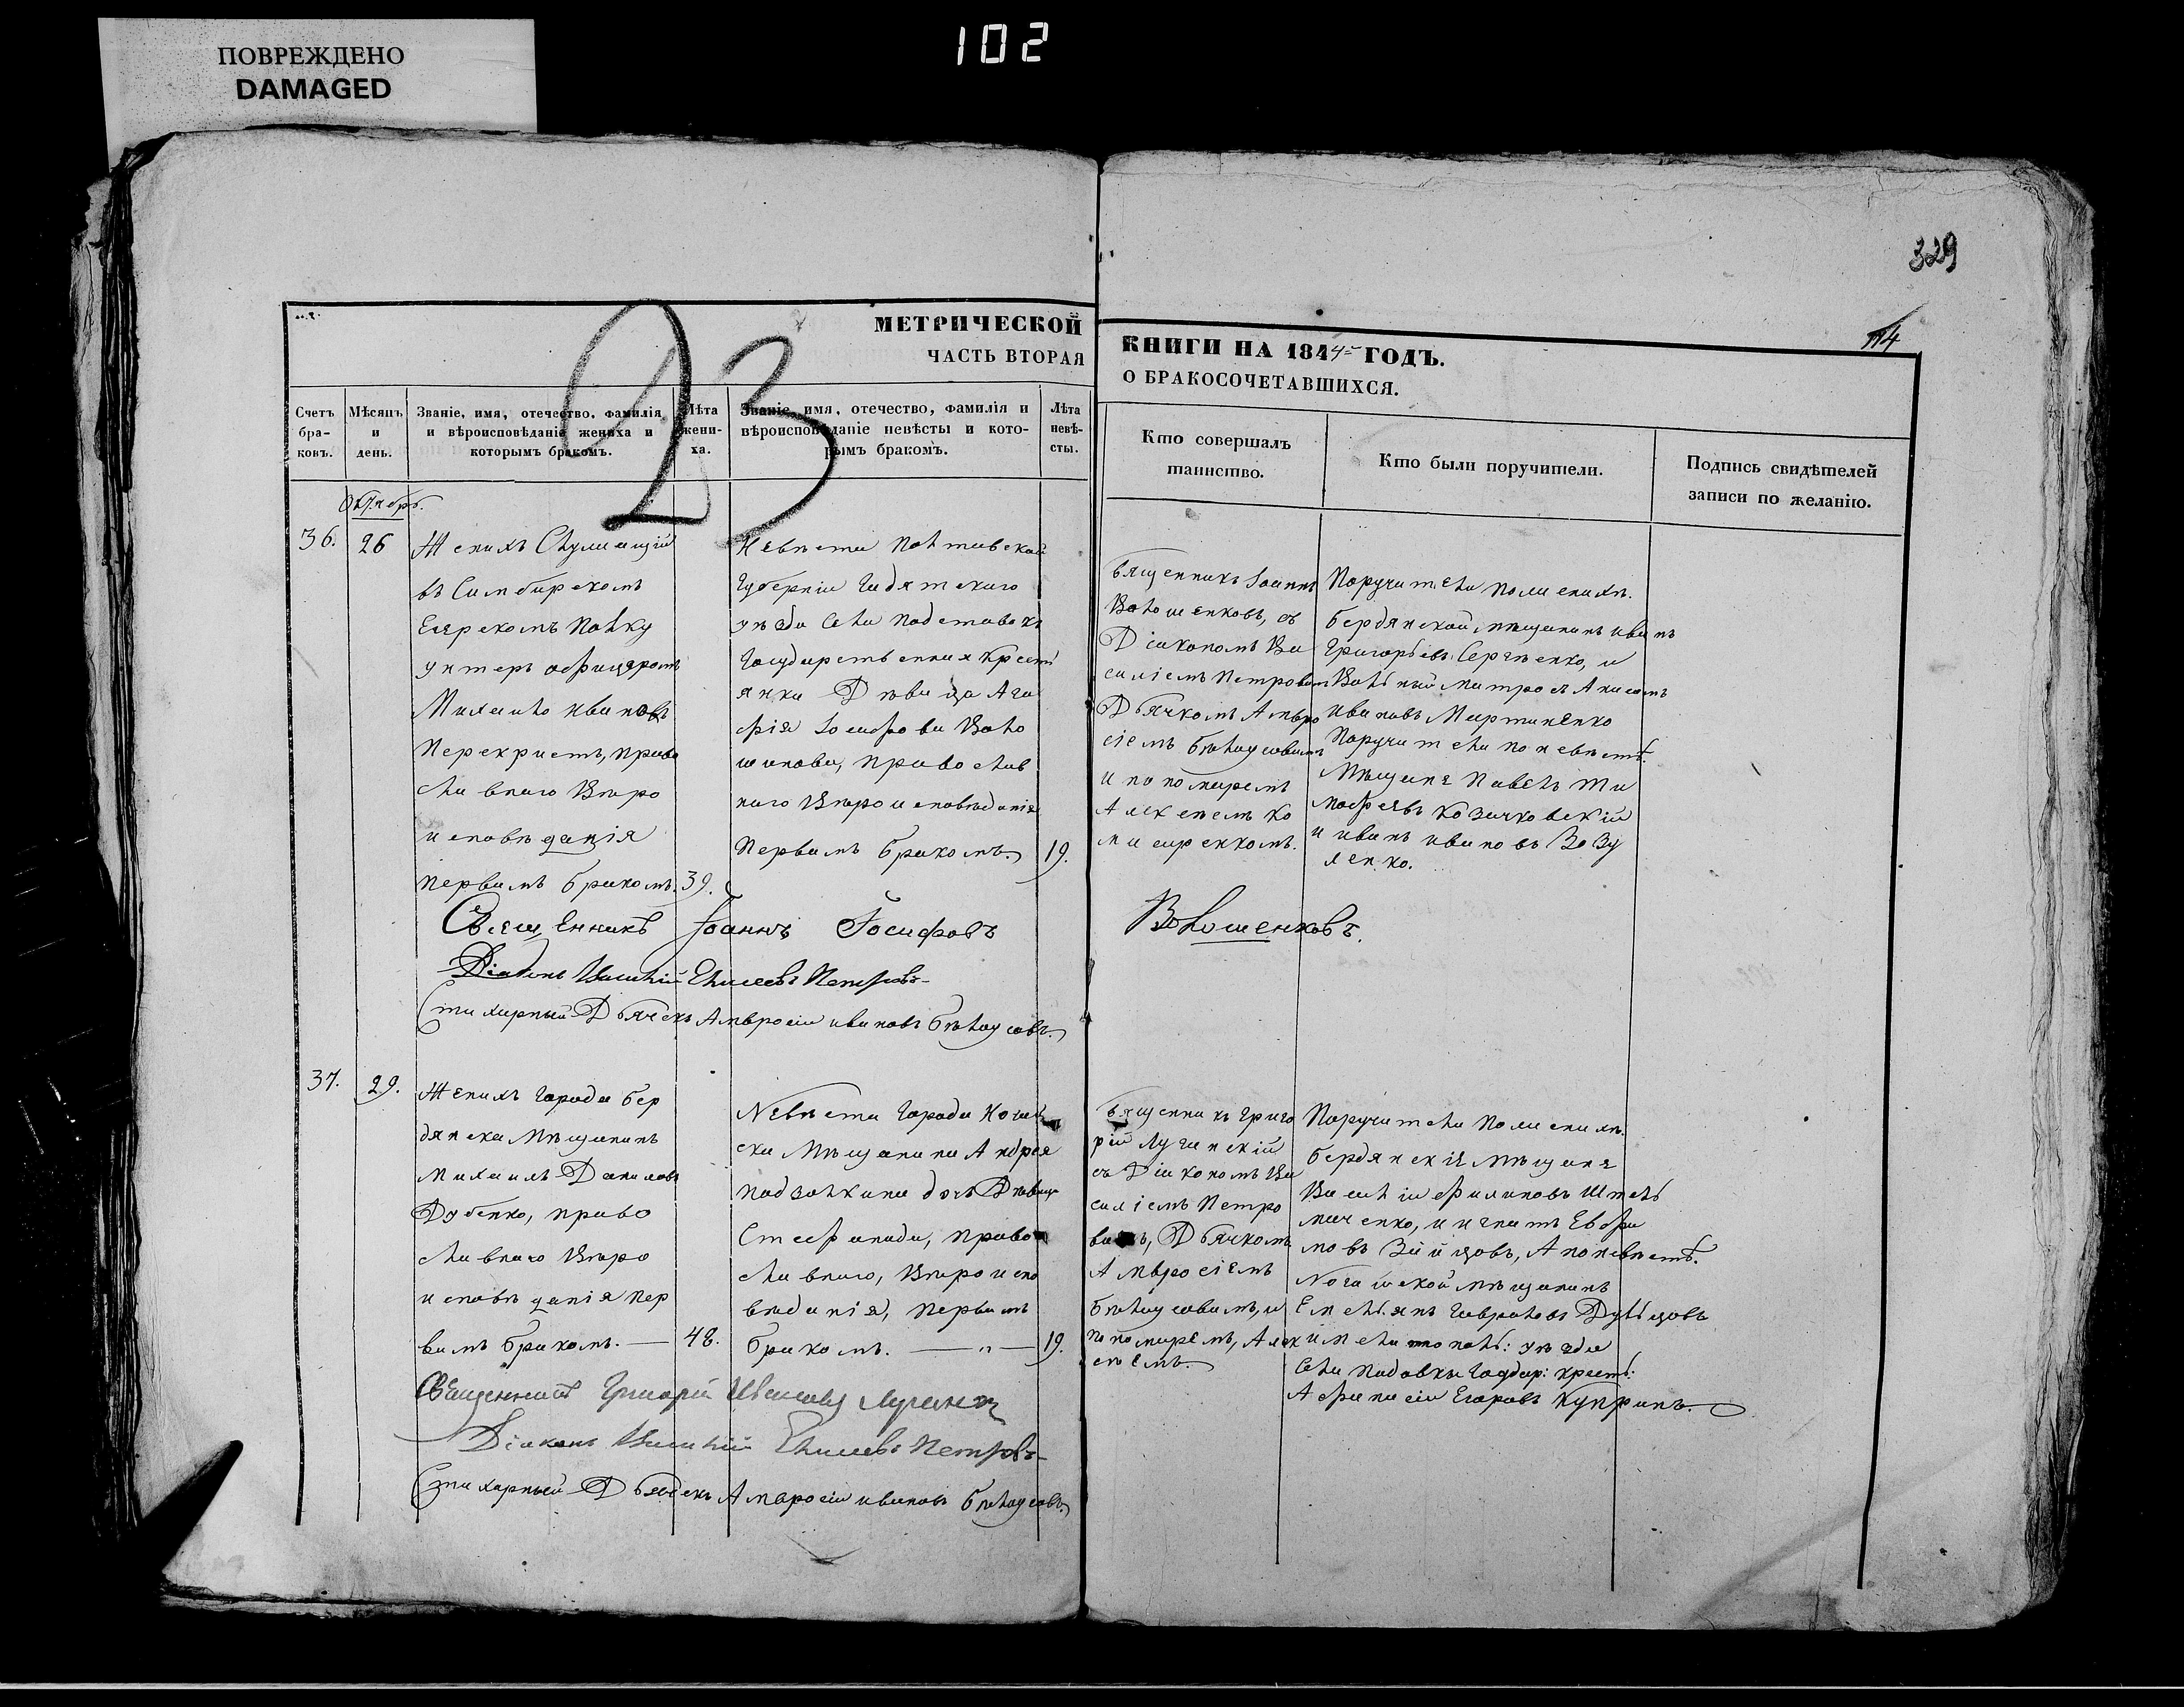 ПОВРЕЖДЕНО
DAMAGED
102
329
114
МЕТРИЧЕСКОЙ
ЧАСТЬ ВТОРАЯ
КНИГИ НА 1844 ГОДЪ.
О БРАКОСОЧЕТАВШИХСЯ.
23
Счетъ бра-ковъ.
Мѣсяцъ и день.
Званіе, имя, отечество, фамилія
и вѣроисповѣданіе жениха и
которымъ бракомъ.
Лѣта жени-ха.
Званіе, имя, отечество, фамилія и
вѣроисповѣданіе невѣсты и кото-
рымъ бракомъ.
Лѣта невѣ-сты.
Кто совершалъ
таинство.
Кто были поручители.
Подпись свидѣтелей
записи по желанію.
Октябрь.
36.
26
Женихъ Служащій
въ Симбирскомъ
Егерскомъ Полку
унтеръ офицеромъ
Михаило Ивановъ
Перекристъ, право
славнаго Вѣро
исповѣданія
первымъ бракомъ.
39.
Невѣста Полтавской
Губерніи Гадятскаго
уѣзда Села Подставокъ
Государственная Крест
янка Дѣвица Ага
фія Іосифова Воло
шинова, православ
наго Вѣроисповѣданія
Первымъ бракомъ.
19.
Священникъ Іоаннъ
Волошенковъ, съ
Діакономъ Ва
силіемъ Петровымъ
Дьячкомъ Амвро
сіемъ Бѣлоусовымъ
и пономаремъ
Алексѣемъ Ко
Поручители по женихѣ.
бердянской мѣщанинъ Иванъ
Григорьевъ Сергѣенко, и
Вольный матросъ Анисимъ
Ивановъ Мартиненко
Поручители по невѣстѣ.
Мѣщане Павелъ Ти
мофѣевъ Козачковскій
и Иванъ Ивановъ Зозу
ленко.
Священникъ Іоаннъ Іосифовъ Волошенковъ.
Діаконъ Василій Елисеевъ Петровъ
Стихарный Дьячекъ Амвросій Ивановъ Бѣлоусовъ.
37.
29.
Женихъ города Бер
дянска Мѣщанинъ
Михаилъ Даниловъ
Дубенко, право
славнаго Вѣро
исповѣданія пер
вымъ бракомъ.
48.
Невѣста города Ногай
ска Мѣщанина Андрея
дочь Дѣвица
Стефанида, право
славнаго, Вѣроиспо
вѣданія, первымъ
бракомъ.
19.
Священникъ Григо
рій Лугинскій
съ Діакономъ Ва
силіемъ Петро
вымъ, Дьячкомъ
Амвросіемъ
Бѣлоусовымъ, и
пономаремъ, Алек
сѣемъ.
Поручители по женихѣ.
бердянскіе мѣщане
Василій Филиповъ Штель
маченко, и Игнатъ Евфи
мовъ Зайцовъ, А по невѣстѣ.
Ногайской мѣщанинъ
Емельянъ Гавриловъ
и Мелитополь: уѣзда
Села Подовки Государ: крест:
Афанасій Егоровъ Купринъ.
Священникъ Григорій
Діаконъ Василій Елисеевъ Петровъ
Стихарный Дьячекъ Амвросій Ивановъ Бѣлоусовъ.